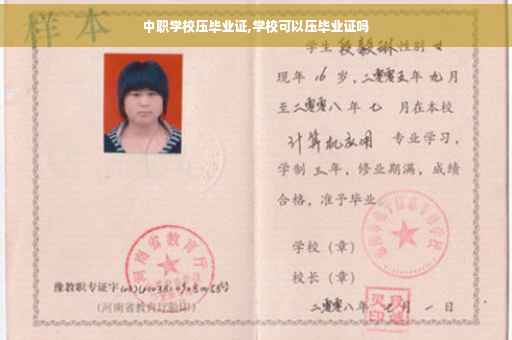 中职学校压毕业证,学校可以压毕业证吗
样本
学生段毅琳性别女
现年16岁，二零零五年九月
至二零零八年七 月在本校
计算机应用 专业学习，
学制三年，修业期满，成绩
合格，准予毕业。
学校（章）
校长（章）
二零零八年七月一日
河南省教育厅
豫教职专证字
(河南省教育厅验印)